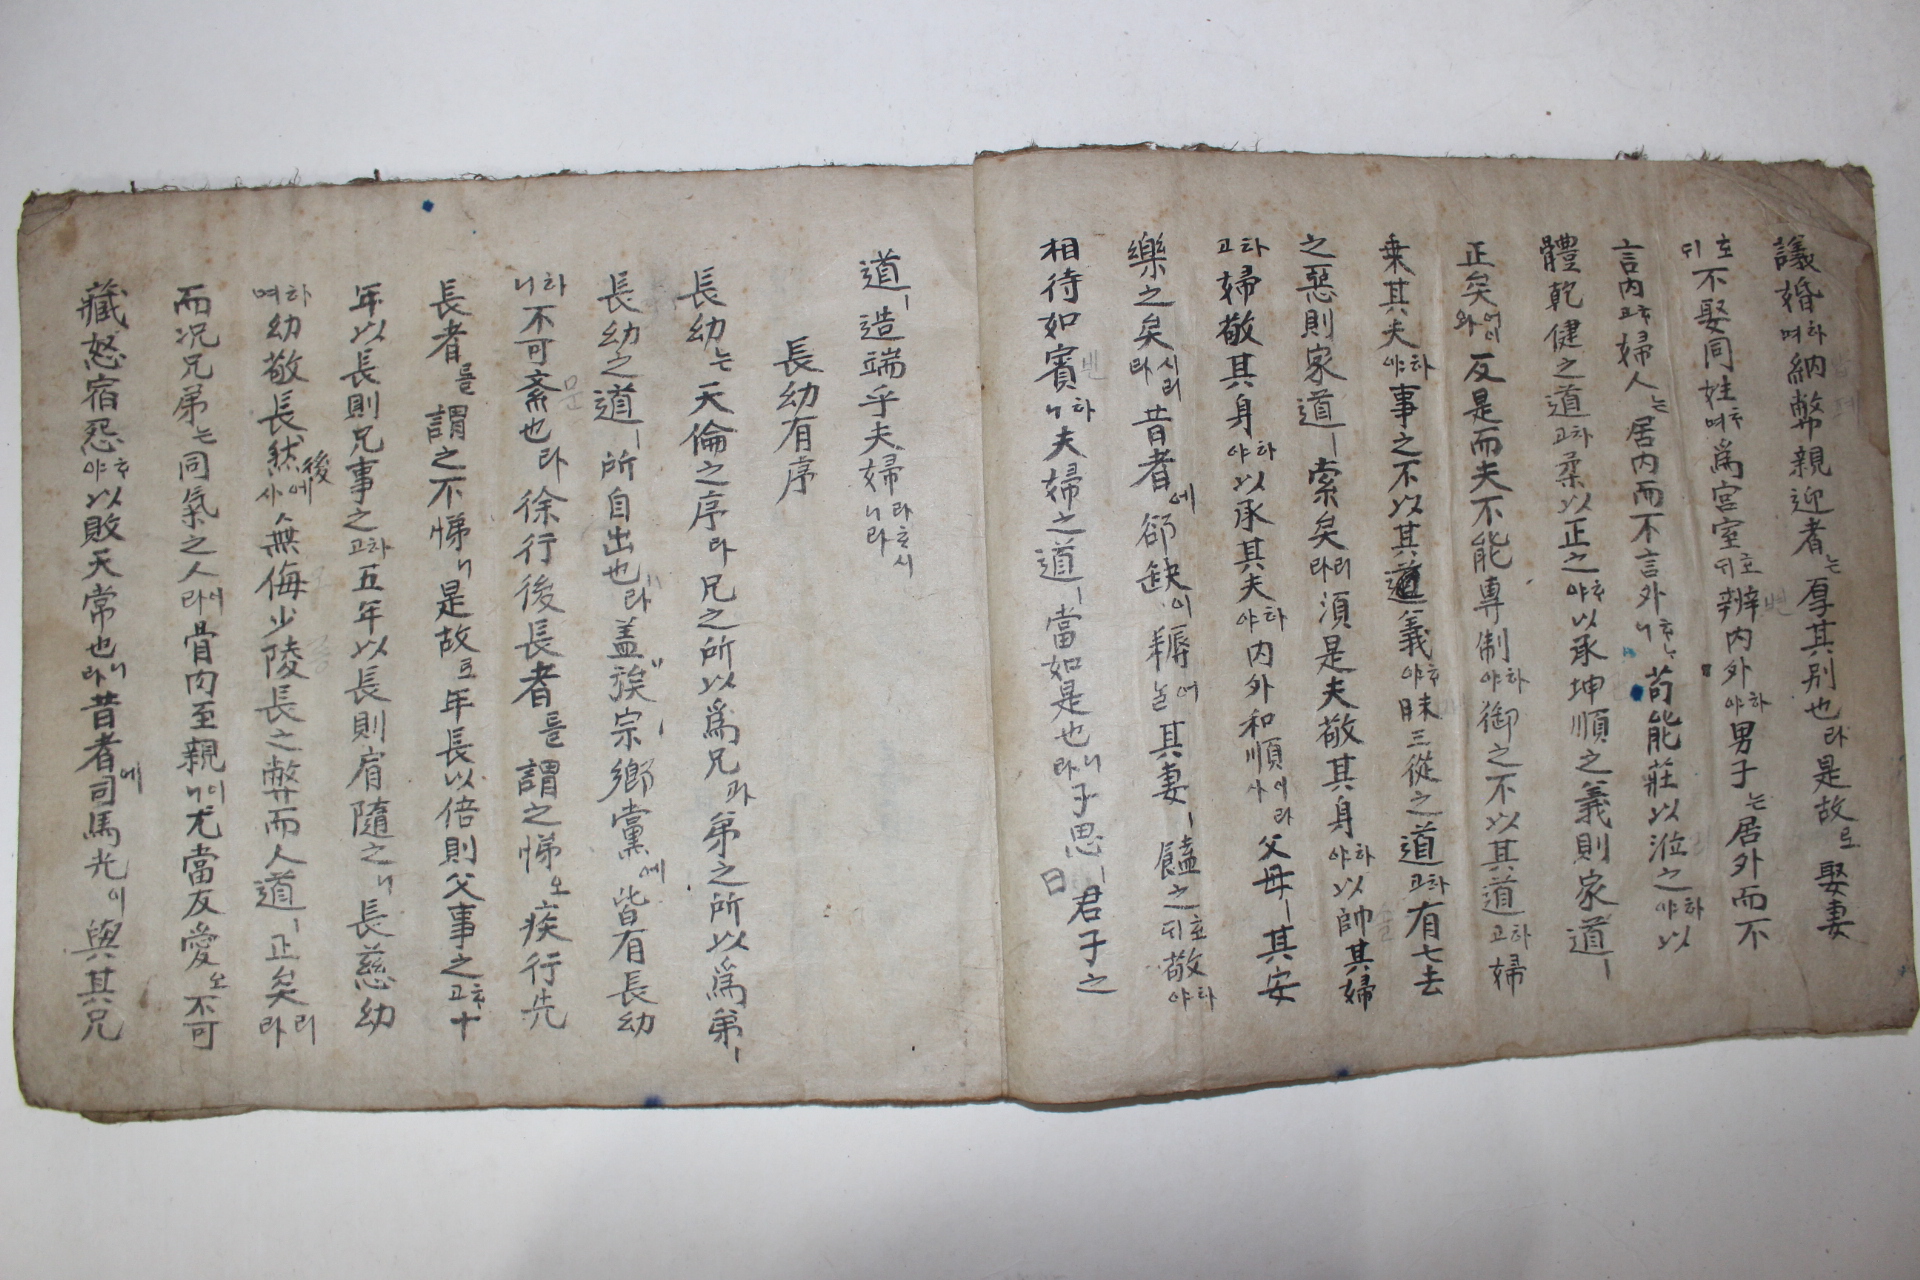 議婚하며納幣親迎者는厚其別也라是故로娶妻
호되不娶同姓하며爲宮室호되辨內外하야男子는居外而不
言內하고婦人는居內而不言外하니苟能莊以涖之하야以
體乾健之道하고柔以正之하야以承坤順之義則家道ㅣ
正矣어이와反是而夫不能專制하야御之不以其道하고婦
乘其夫하야事之不以其道義하야昧三從之道하고有七去
之惡則家道ㅣ索矣리라須是夫敬其身하야以帥其婦
하고婦敬其身하야以承其夫하야內外和順이라사父母ㅣ其安
樂之矣시리라昔者에郤缺이耨여늘其妻ㅣ饁之호되敬하야
相待如賓하니夫婦之道ㅣ當如是也니라子思ㅣ曰君子之
道ㅣ造端乎夫婦라하시니라
長幼有序
長幼는天倫之序라兄之所以爲兄과弟之所以爲弟ㅣ
長幼之道ㅣ所自出也라盖族宗鄕黨에皆有長幼
하니不可紊也라徐行後長者를謂之悌오疾行先
長者를謂之不悌니是故로年長以倍則父事之하고十
年以長則兄事之하고五年以長則肩隨之니長慈幼
하며幼敬長然後에사無侮少陵長之弊而人道ㅣ正矣리라
而況兄弟는同氣之人이라骨肉至親이니尤當友愛오不可
藏怒宿怨하야以敗天常也니라昔者에司馬光이與其兄